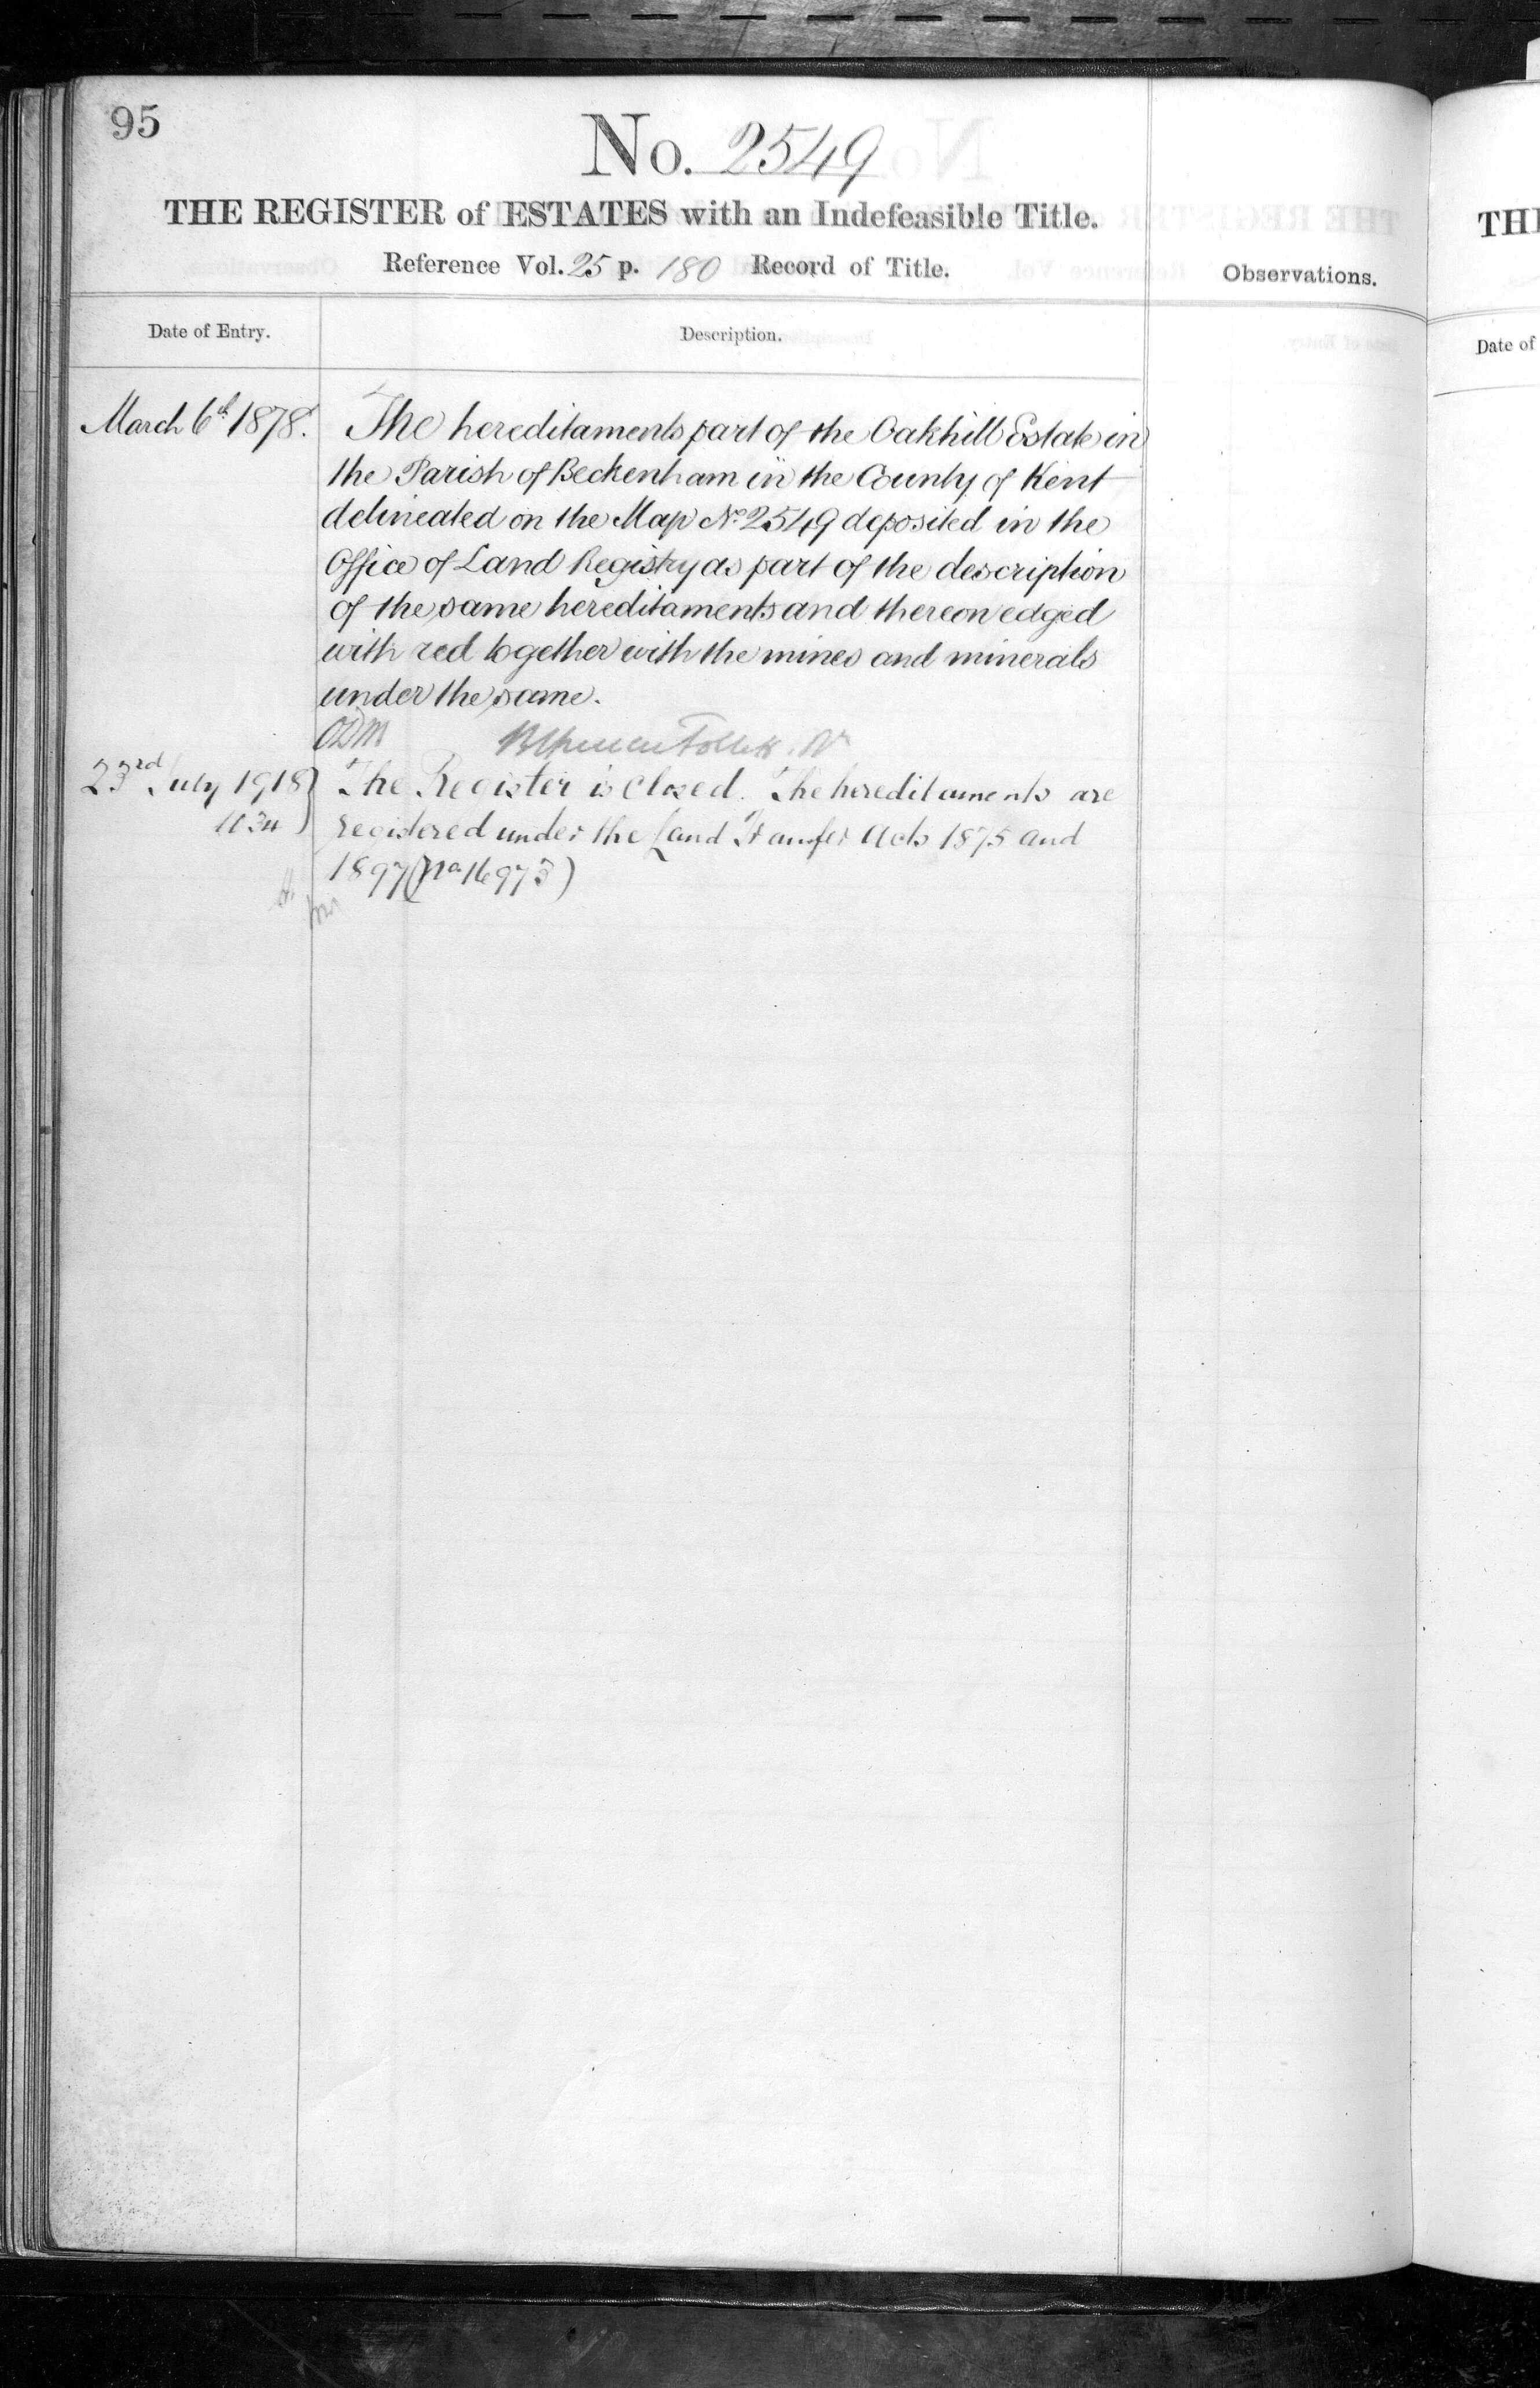 95
No. 2549
THE REGISTER of ESTATES with an Indefeasible Title.
Reference Vol. 25 p. 180 Record of Title.
Observations.
Date of Entry.
Description.
March 6th 1878.
The hereditaments part of the Oakhill Estate in
the Parish of Beckenham in the County of Kent
delineated on the Map No 2549 deposited in the
Office of Land Registry as part of the description
of the same hereditaments and thereon edged
with red together with the mines and minerals
under the same.
23rd July 1918
The Register is closed. The hereditaments are
registered under the Land Transfer Acts 1875 and
1897 (no 16973)
THE
Date of